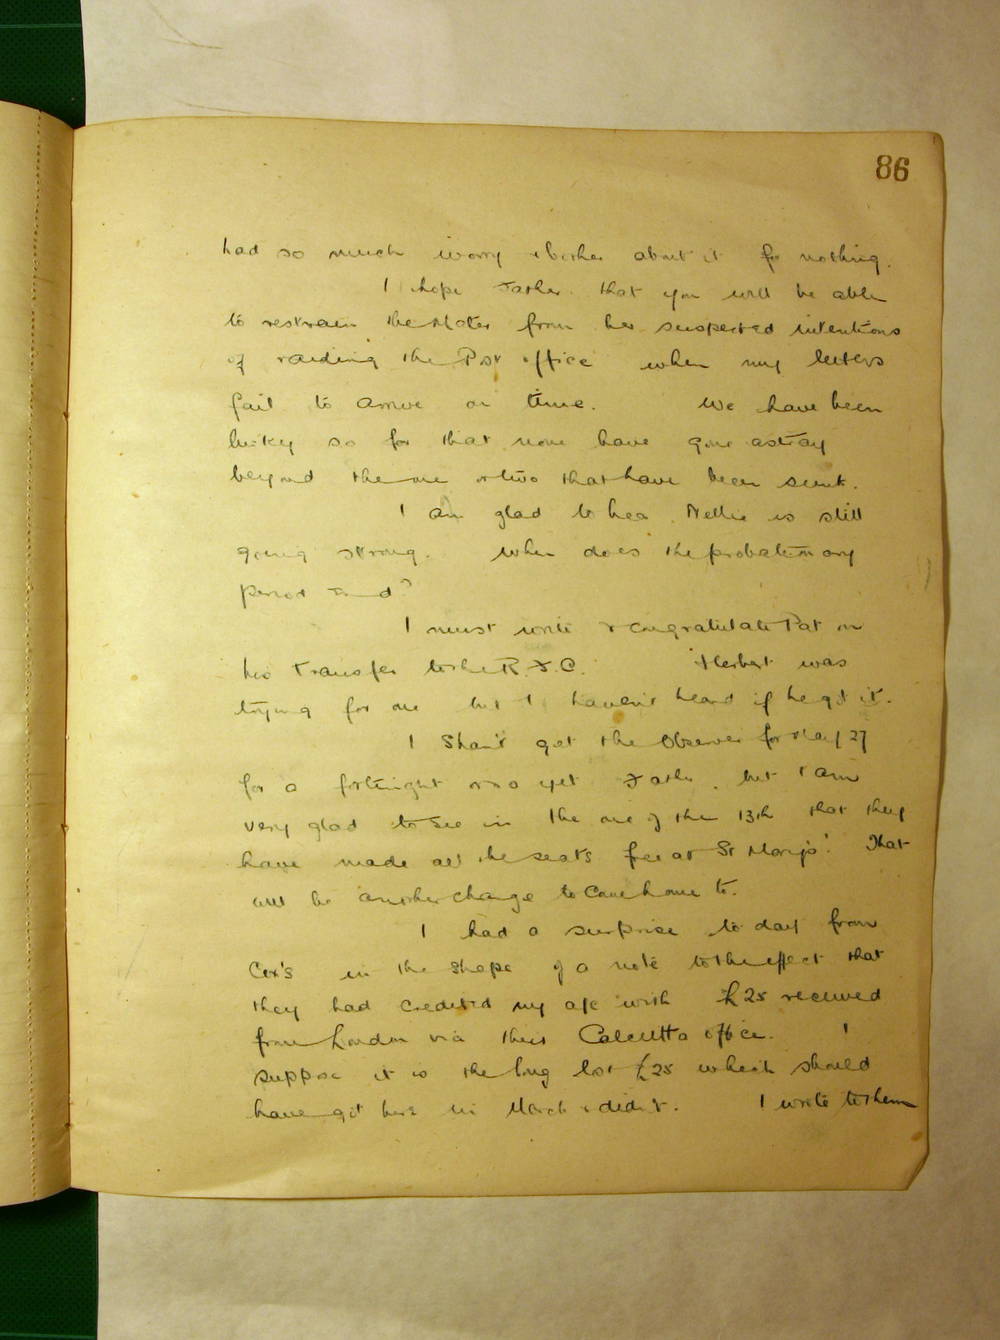 86
had so much worry & bother about it for nothing.
I hope Father that you will be able
to restrain the Mater from her suspected intentions
of raiding the Post office when my letters
fail to arrive on time. We have been
lucky so far that none have gone astray
beyond the one or two that have been sunk.
I am glad to hear Nellie is still
going strong. When does the probationary
period end?
I must write & congratulate Pat on
his transfer to the R.F.C. Herbert was
trying for one but I haven't heard if he got it.
I shan't get the Observer for May 27
for a fortnight or so yet Father, but I am
very glad to see in the one of the 13th that they
have made all the seats free at St Mary's! That
will be another change to come home to.
I had a surprise to day from
Cox's in the shape of a note to the effect that
they had credited my a/c with £25 received
from London via their Calcutta office. I
suppose it is the long lost £25 which should
have got here in March & didn't. I wrote to them